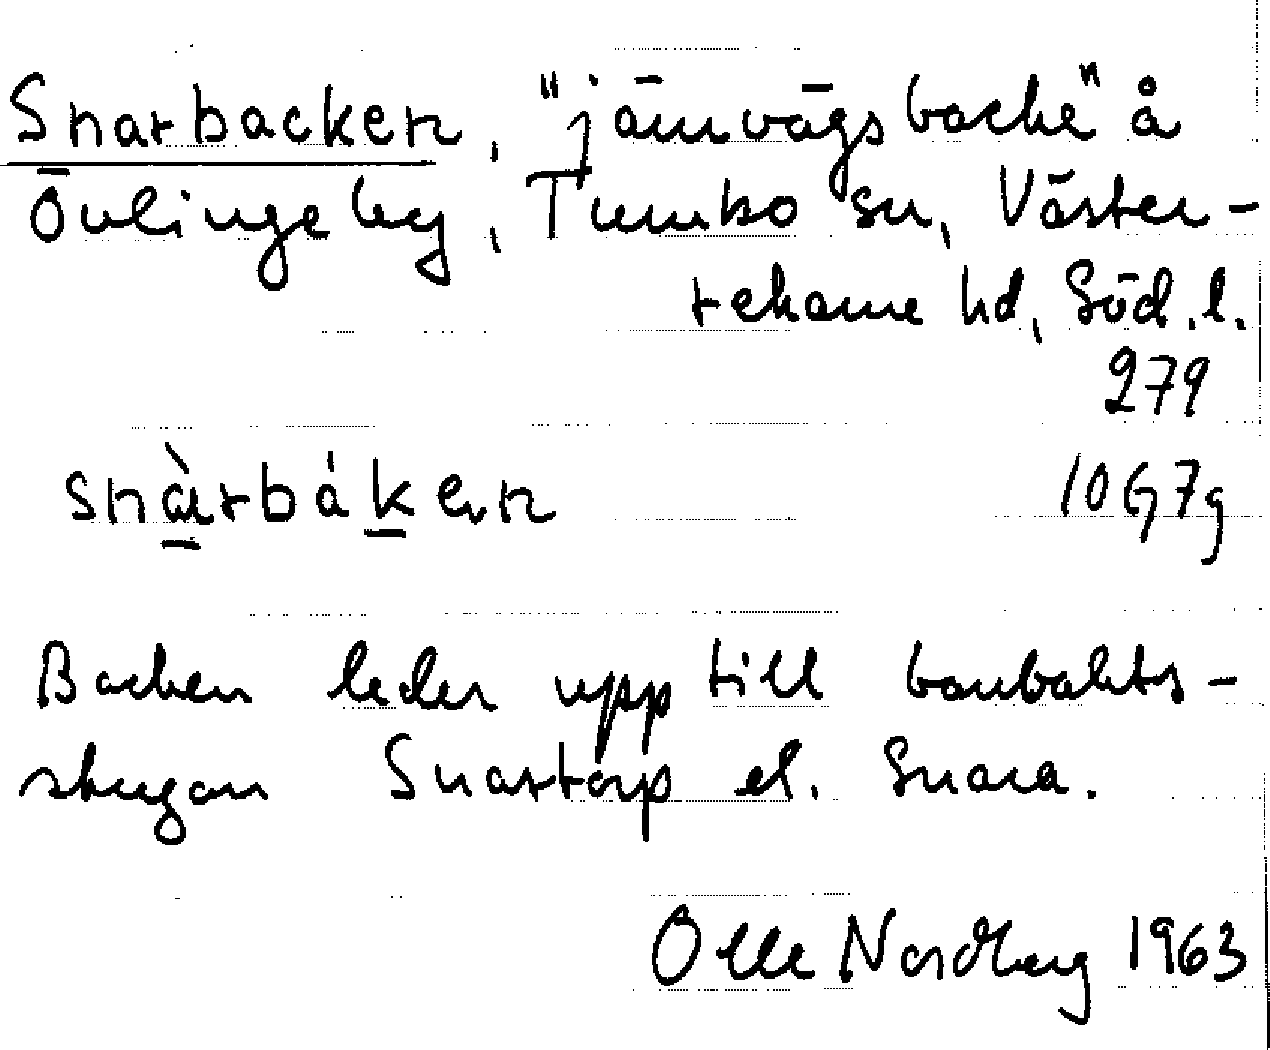 Snarbacken, "järnvägsbacke" å
Övlingeby, Tumbo sn, Väster-
rekarne hd, Söd. l.
279
snàrbáken 10G7g
Backen leder upp till banvakts-
stugan Snartorp el. Snara.
Olle Nordberg 1963